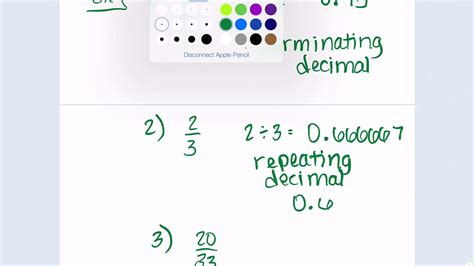 Disconnect Apple Pencil
rminating
decimal
2) 2/3 2 ÷ 3 = 0.666667
repeating
decimal
0.6
3) 20/33